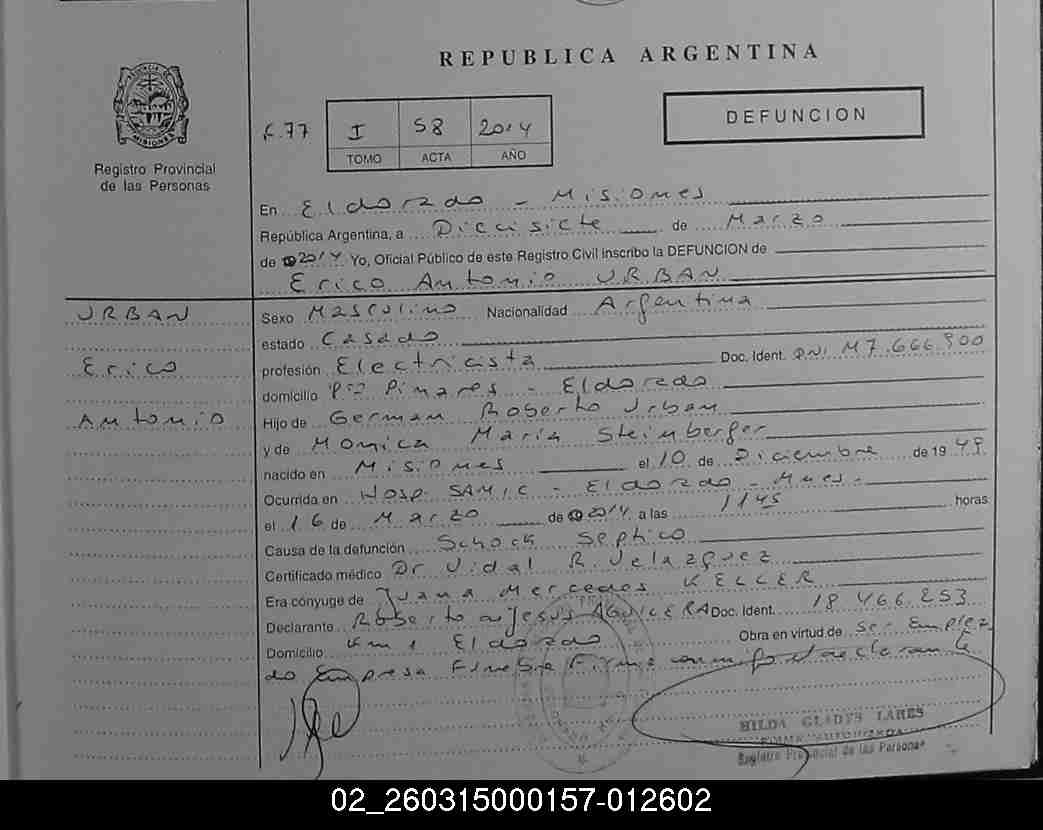 REPUBLICA ARGENTINA
PROVINCIA DE
MISIONES
Registro Provincial
de las Personas
F.77
I 58 2014
TOMO ACTA AÑO
DEFUNCION
En Eldorado - Misiones
República Argentina, a Diecisiete de Marzo
de 2014 Yo, Oficial Público de este Registro Civil inscribo la DEFUNCION de
Erico Antonio URBAN
URBAN
Erico
Antonio
Sexo Masculino Nacionalidad Argentina
estado Casado
profesión Electricista Doc. Ident. DNI M7.666.900
domicilio Pinares - Eldorado
Hijo de German Roberto Urban
y de Monica Maria Steinberger
nacido en Misiones el 10 de Diciembre de 1949
Ocurrida en Hosp. SAMIC - Eldorado - Mnes.
el 16 de Marzo de 2014 a las 1145 horas
Causa de la defunción Schock Septico
Certificado médico Dr Vidal R. Velazquez
Era cónyuge de Juana Mercedes KELLER
Declarante Roberto de Jesus AGUILERA Doc. Ident. 18 466 253
Domicilio Km 1 Eldorado Obra en virtud de Ser Emplea
do Empresa Funebre Firma conmigo el declarante
HILDA GLADYS LARES
FIRMA AUTORIZADA
Registro Provincial de las Personas
02_260315000157-012602